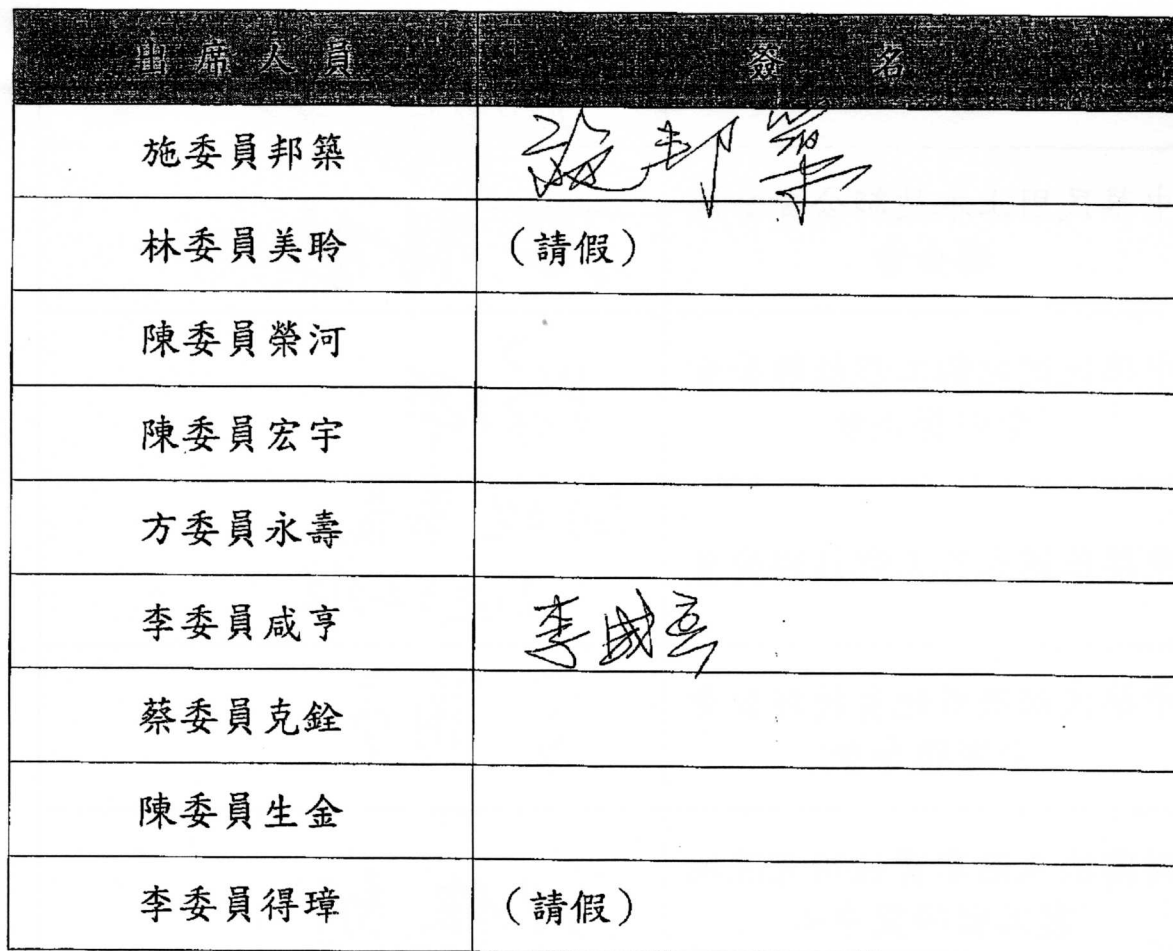 出席人員 簽名
施委員邦築 施邦築
林委員美聆 （請假）
陳委員榮河
陳委員宏宇
方委員永壽
李委員咸亨 李咸亨
蔡委員克銓
陳委員生金
李委員得璋 （請假）